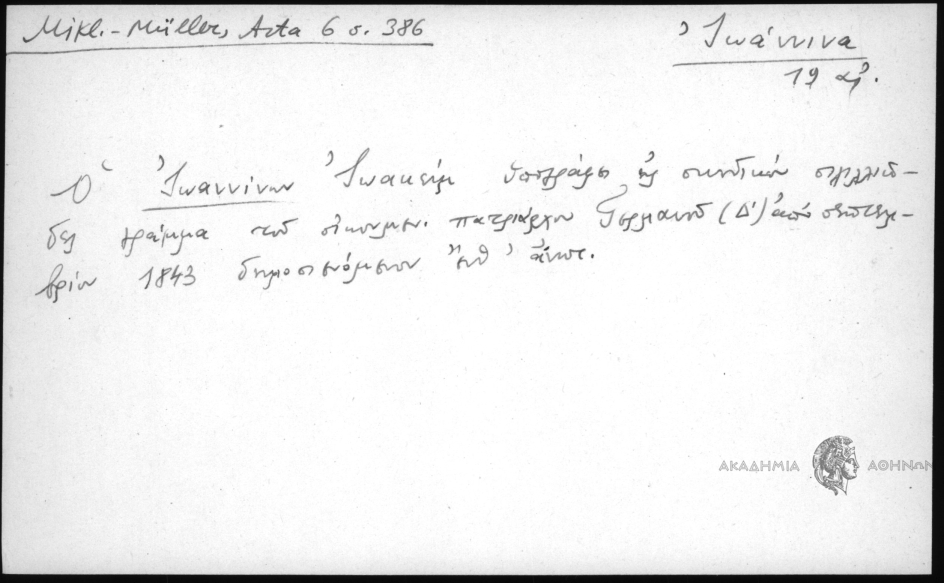 Mikl.-Müller, Acta 6 σ. 386
Ἰωάννινα
19 αἰ.
Ὁ Ἰωαννίνων Ἰωακεὶμ ὑπογράφει ὡς συνοδικὸν σιγιλλιῶ-
δες γράμμα τοῦ οἰκουμεν. πατριάρχου Γερμανοῦ (Δ') ἀπὸ σεπτεμ-
βρίου 1843 δημοσιευόμενον ἔνθ' ἄνωτ.
ΑΚΑΔΗΜΙΑ ΑΘΗΝΩΝ